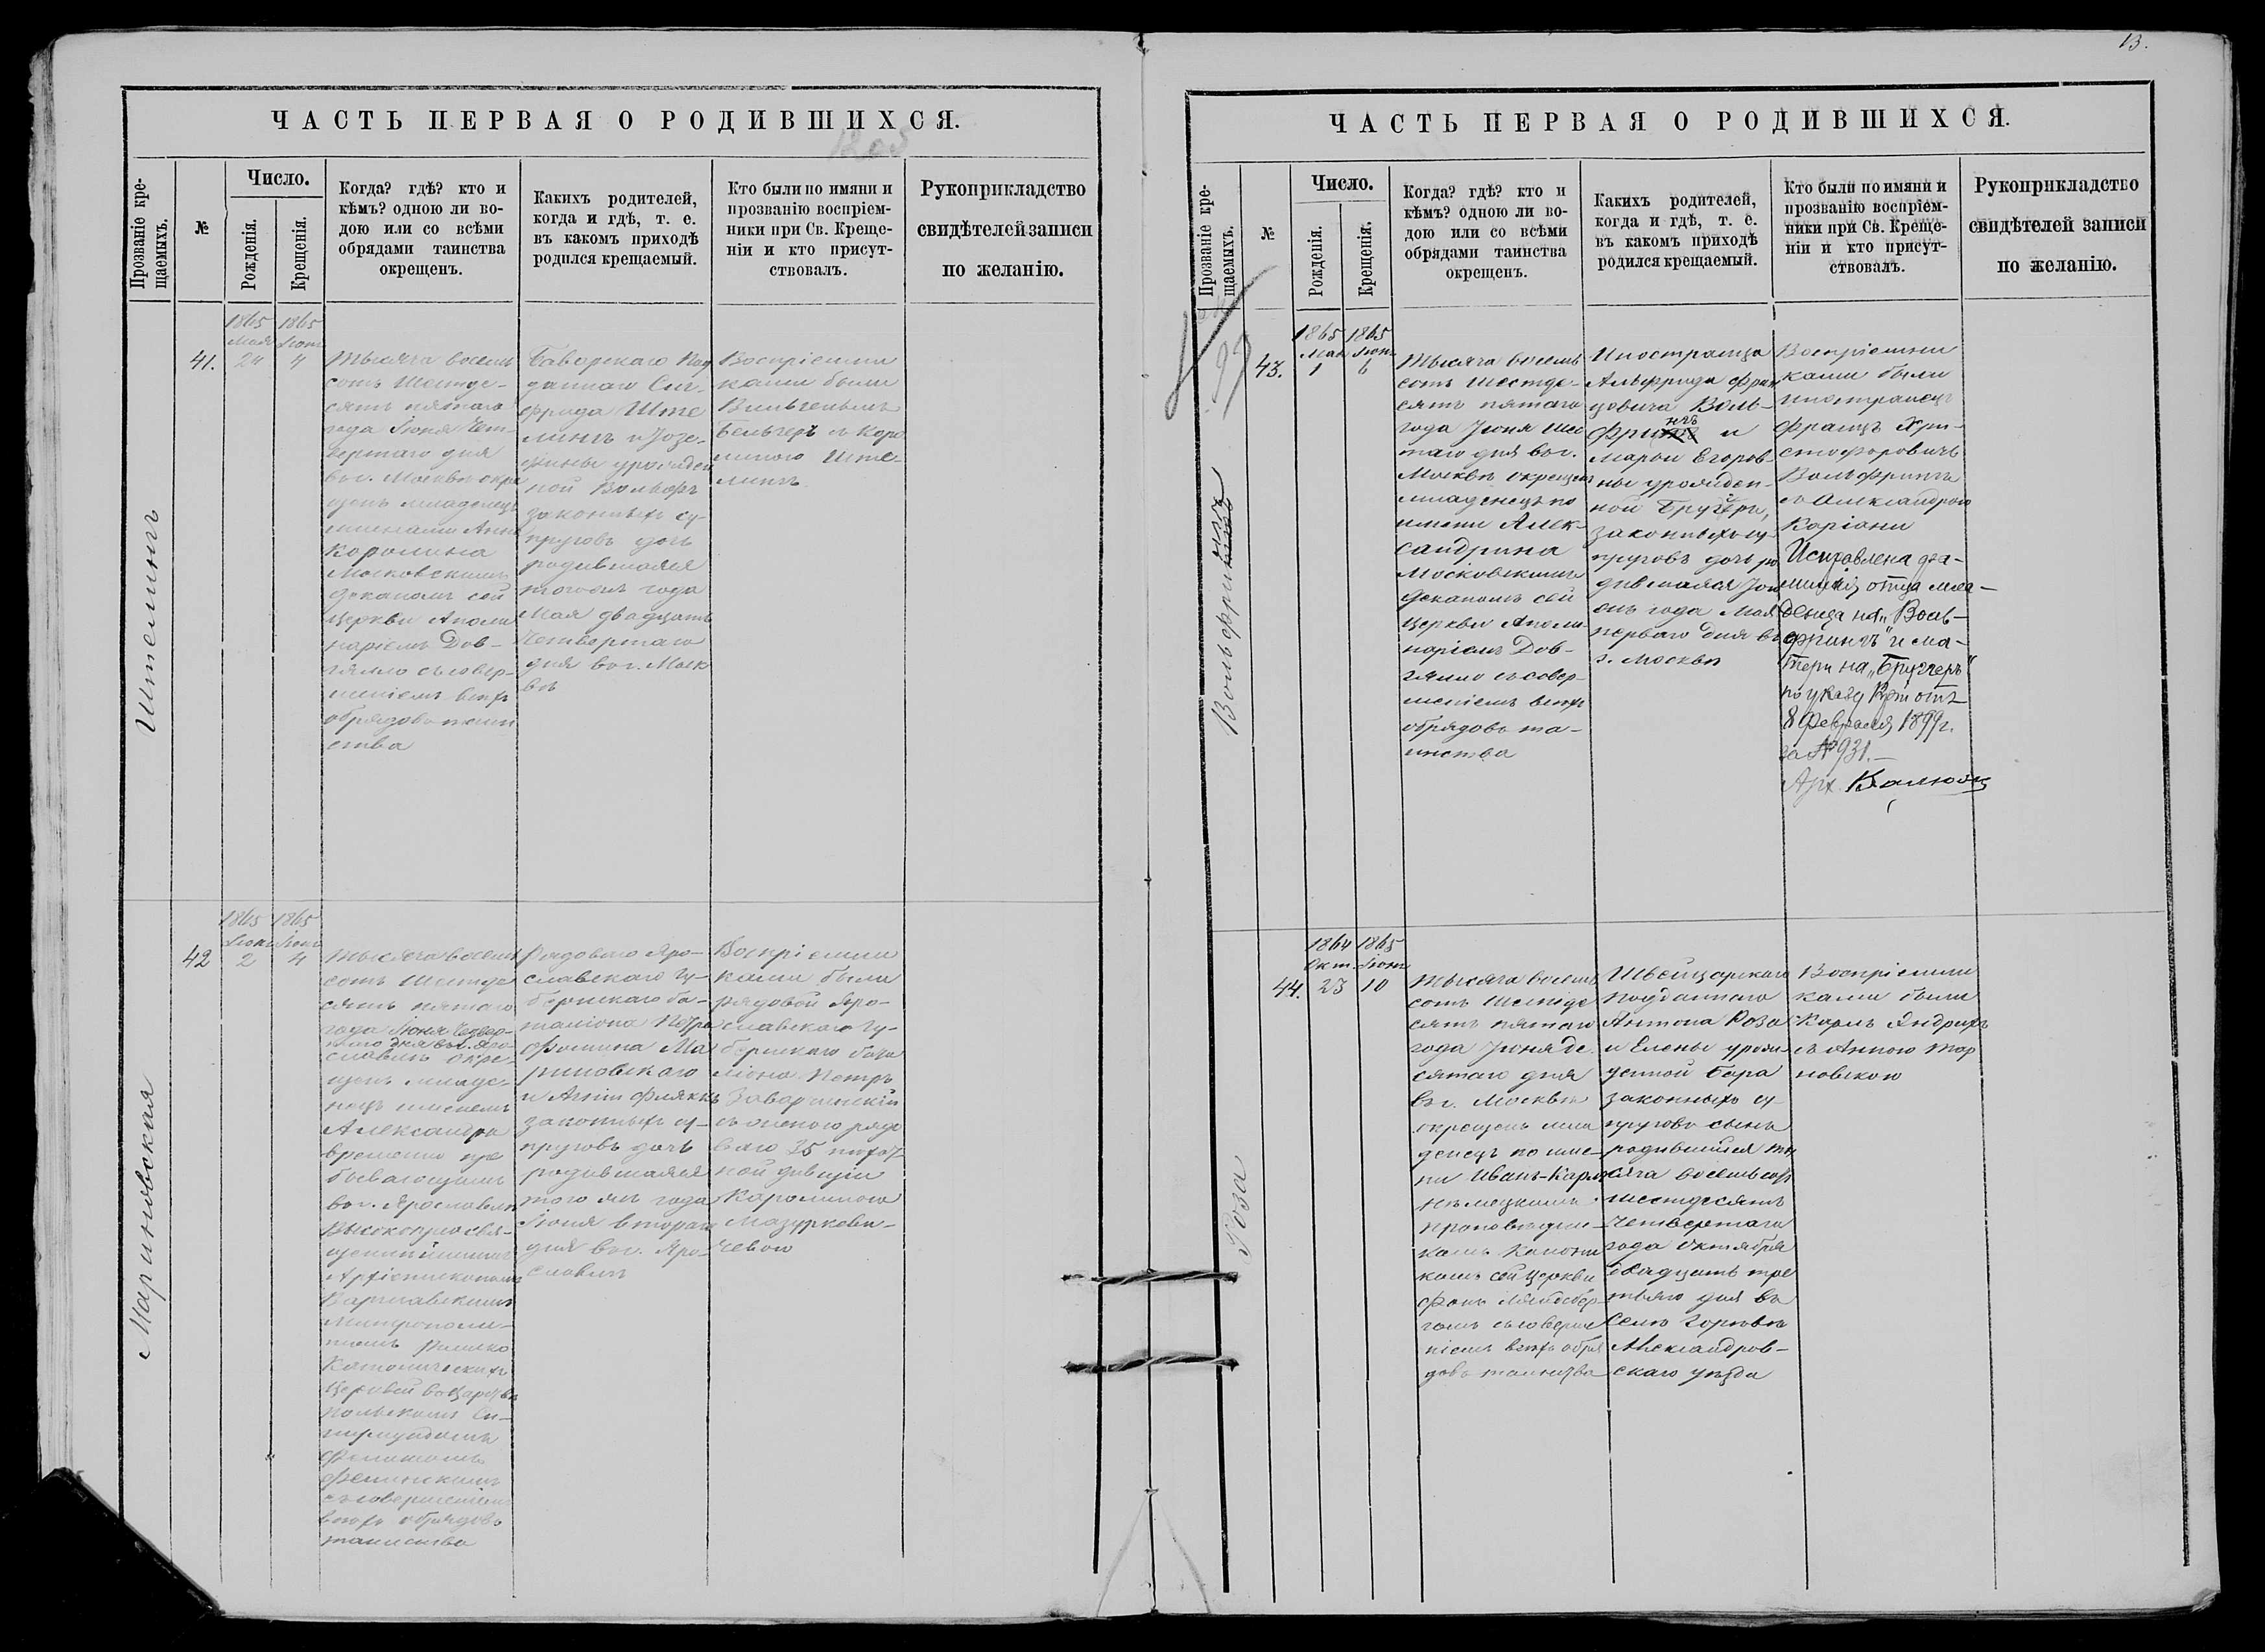 ЧАСТЬ ПЕРВАЯ О РОДИВШИХСЯ.
Прозваніе кре-
щаемыхъ.
№
Число.
Рожденія.
Крещенія.
Когда? гдѣ? кто и
кѣмъ? одною ли во-
дою или со всѣми
обрядами таинства
окрещенъ.
Какихъ родителей,
когда и гдѣ, т. е.
въ какомъ приходѣ
родился крещаемый.
Кто были по имяни и
прозванію воспріем-
ники при Св. Креще-
ніи и кто присут-
ствовалъ.
Рукоприкладство
свидѣтелей записи
по желанію.
Штелинъ
41.
1865
Мая
24
1865
Іюня
4
Тысяча восемь
сотъ шестьде-
сятъ пятаго
года Іюня чет-
вертаго дня
въ г. Москвѣ окре
щенъ младенецъ
именами Анна
Каролина
Московскимъ
Деканомъ сей
церкви Аполи
наріемъ Дов-
гялло съ совер-
шеніемъ всѣхъ
обрядовъ таин
ства
Баварскаго под
даннаго Сиг-
фрида Ште
линъ и Іозе-
фины урожден
ной Вольфъ
законныхъ су-
пруговъ дочь
родившаяся
тогожъ года
Мая двадцать
четвертаго
дня въ г. Моск
вѣ
Воспріемни
ками были
Вильгельмъ
Бельгеръ съ Каро
линою Ште-
линъ
Мариновская
42
1865
Іюня
2
1865
Іюня
4
Тысяча восемь
сотъ шестьде
сятъ пятаго
года Іюня четвер-
таго дня въ г. Яро-
славлѣ окре-
щенъ младе-
нецъ именемъ
Александра
временно пре
бывающимъ
въ г. Ярославлѣ
Высокопреосвя-
щеннѣйшимъ
Архіепископомъ
Варшавскимъ
Митрополи-
томъ Римско
Католическихъ
церквей въ Царствѣ
Польскомъ Си-
гизмундомъ
Феликсомъ
Фелинскимъ
съ совершеніемъ
всѣхъ обрядовъ
таинства
Рядоваго Яро-
славскаго гу-
бернскаго ба-
таліона Петра
Фомина Ма
риновскаго
и Анны Флякъ
законныхъ су-
пруговъ дочь
родившаяся
того жъ года
Іюня втораго
дня въ г. Яро-
славлѣ
Воспріемни
ками были
рядовой Яро-
славскаго гу-
бернскаго бата
ліона Петръ
съ женою рядо
ваго 35
ной дивизіи
Каролиною
Мазуркеви-
чевою
13.
ЧАСТЬ ПЕРВАЯ О РОДИВШИХСЯ.
Прозваніе кре-
щаемыхъ.
№
Число.
Рожденія.
Крещенія.
Когда? гдѣ? кто и
кѣмъ? одною ли во-
дою или со всѣми
обрядами таинства
окрещенъ.
Какихъ родителей,
когда и гдѣ, т. е.
въ какомъ приходѣ
родился крещаемый.
Кто были по имяни и
прозванію воспріем-
ники при Св. Креще-
ніи и кто присут-
ствовалъ.
Рукоприкладство
свидѣтелей записи
по желанію.
Вольфрингъ
43.
1865
Мая
1
1865
Іюня
6
Тысяча восемь
сотъ шестьде-
сятъ пятаго
года Іюня шес
таго дня въ г.
Москвѣ окрещенъ
младенецъ по
имени Алек-
сандрина
Московскимъ
Деканомъ сей
церкви Аполи-
наріемъ Дов-
гялло съ совер-
шеніемъ всѣхъ
обрядовъ та-
инства
Иностранца
Альфрида Фран
цовича Воль-
фрингъ и
Маріи Егоров-
ны урожден-
ной Бруггеръ,
законныхъ су-
пруговъ дочь ро
дившаяся того
жъ года Мая
перваго дня въ
г. Москвѣ
Воспріемни
ками были
иностранецъ
Францъ Хри-
стофоровичъ
Вольфрингъ
съ Александрою
Каріани
Исправлена фа-
милія отца мла-
денца на „Воль-
фрингъ" и ма-
тери на „Бруггеръ"
по указу Конст. отъ
8 Февраля 1899 г.
за № 931.—
Роза
44.
1864
Окт.
23
1865
Іюня
10
Тысяча восемь
сотъ шестьде
сятъ пятаго
года Іюня де
сятаго дня
въ г. Москвѣ
окрещенъ мла
денецъ по име-
ни Иванъ-Карлъ
нѣмецкимъ
проповѣдни-
комъ Канони
комъ сей церкви
фонъ
съ соверше
ніемъ всѣхъ обря
довъ таинства
Швейцарскаго
подданнаго
Антона Роза
и Елены урож
денной Бера
законныхъ су-
пруговъ сынъ
родившійся ты
сяча восемьсотъ
шестьдесятъ
четвертаго
года Октября
двадцать тре
тьяго дня въ
селѣ
Александров-
скаго уѣзда
Воспріемни
ками были
Карлъ Яндрихъ
съ Анною Тар
новскою